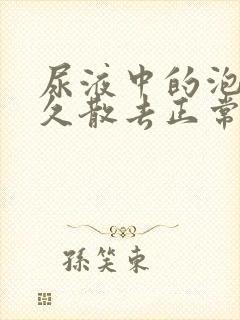 尿液中的泡
久散去正常
孫笑東